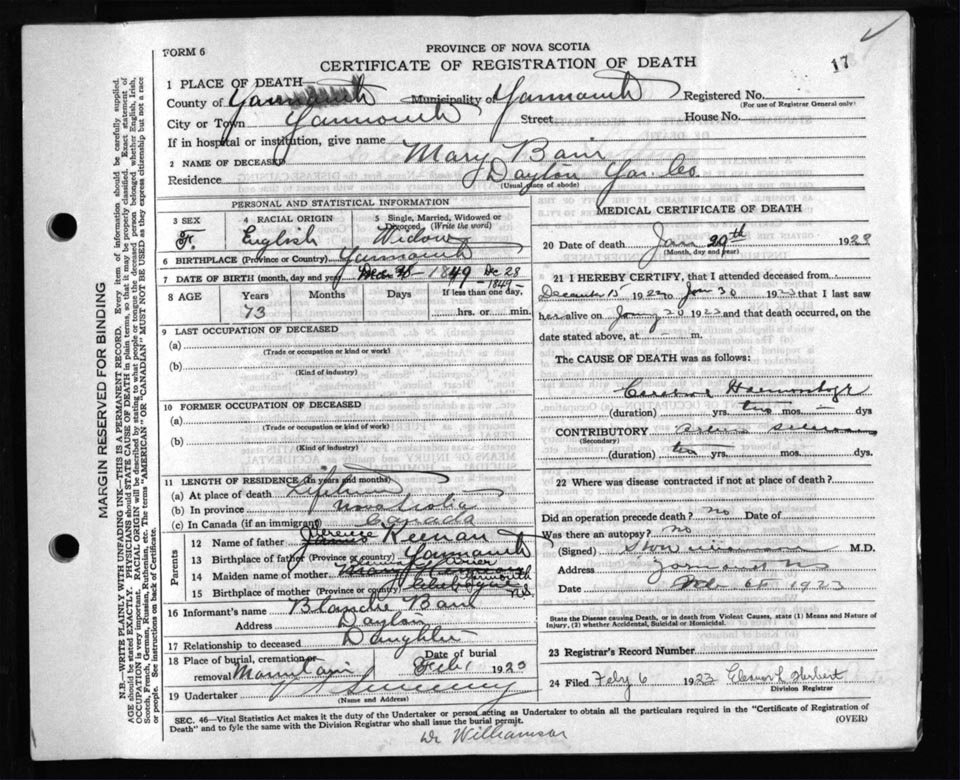 17
FORM 6
PROVINCE OF NOVA SCOTIA
CERTIFICATE OF REGISTRATION OF DEATH
MARGIN RESERVED FOR BINDING
N.B.—WRITE PLAINLY WITH UNFADING INK—THIS IS A PERMANENT RECORD. Every item of information should be carefully supplied.
AGE should be stated EXACTLY. PHYSICIANS should STATE CAUSE OF DEATH in plain terms, so that it may be properly classified. Exact statement of
OCCUPATION is very important. RACIAL ORIGIN will be described by stating to what people or tongue the deceased person belonged whether English, Irish,
Scotch, French, German, Russian, Ruthenian, etc. The terms "AMERICAN" OR "CANADIAN" MUST NOT BE USED as they express citizenship but not a race
or people. See instructions on back of Certificate.
1 PLACE OF DEATH
County of Yarmouth Municipality of Yarmouth Registered No.
(For use of Registrar General only)
City or Town Yarmouth Street House No.
If in hospital or institution, give name
2 NAME OF DECEASED Mary Bain
Residence Dayton Yar. Co.
(Usual place of abode)
PERSONAL AND STATISTICAL INFORMATION
3 SEX F.
4 RACIAL ORIGIN English
5 Single, Married, Widowed or Divorced (Write the word) Widow
6 BIRTHPLACE (Province or Country) Yarmouth
7 DATE OF BIRTH (month, day and year) 1849 Dec 28 -1849-
8 AGE Years Months Days If less than one day,
73 hrs. or min.
9 LAST OCCUPATION OF DECEASED
(a)
(Trade or occupation or kind or work)
(b)
(Kind of industry)
10 FORMER OCCUPATION OF DECEASED
(a)
(Trade or occupation or kind of work)
(b)
(Kind of industry)
11 LENGTH OF RESIDENCE (In years and months)
(a) At place of death Lifetime
(b) In province Nova Scotia
(c) In Canada (if an immigrant) Canada
Parents
12 Name of father Keenan
13 Birthplace of father (Province or country) Yarmouth
14 Maiden name of mother
15 Birthplace of mother (Province or country) Yarmouth N.S.
16 Informant's name Blanche Bain
Address Dayton
17 Relationship to deceased Daughter
18 Place of burial, cremation or removal Mountain Date of burial Feb 1 1923
19 Undertaker Sweeney
(Name and Address)
MEDICAL CERTIFICATE OF DEATH
20 Date of death Jan 29th 1923
(Month, day and year)
21 I HEREBY CERTIFY, that I attended deceased from
December 15 1922 to Jan 30 1923 that I last saw
her alive on 1923 and that death occurred, on the
date stated above, at m.
The CAUSE OF DEATH was as follows:
Cerebral Haemorrhage
(duration) yrs. two mos. dys
CONTRIBUTORY
(Secondary)
(duration) two yrs. mos. dys.
22 Where was disease contracted if not at place of death?
Did an operation precede death? no Date of
Was there an autopsy? no
(Signed) M.D.
Address Yarmouth NS
Date Feb 6th 1923
State the Disease causing Death, or in death from Violent Causes, state (1) Means and Nature of
Injury, (2) whether Accidental, Suicidal or Homicidal.
23 Registrar's Record Number
24 Filed Feby 6 1923 Herbert
Division Registrar
SEC. 46—Vital Statistics Act makes it the duty of the Undertaker or person acting as Undertaker to obtain all the particulars required in the "Certificate of Registration of
Death" and to fyle the same with the Division Registrar who shall issue the burial permit. (OVER)
Dr Williamson